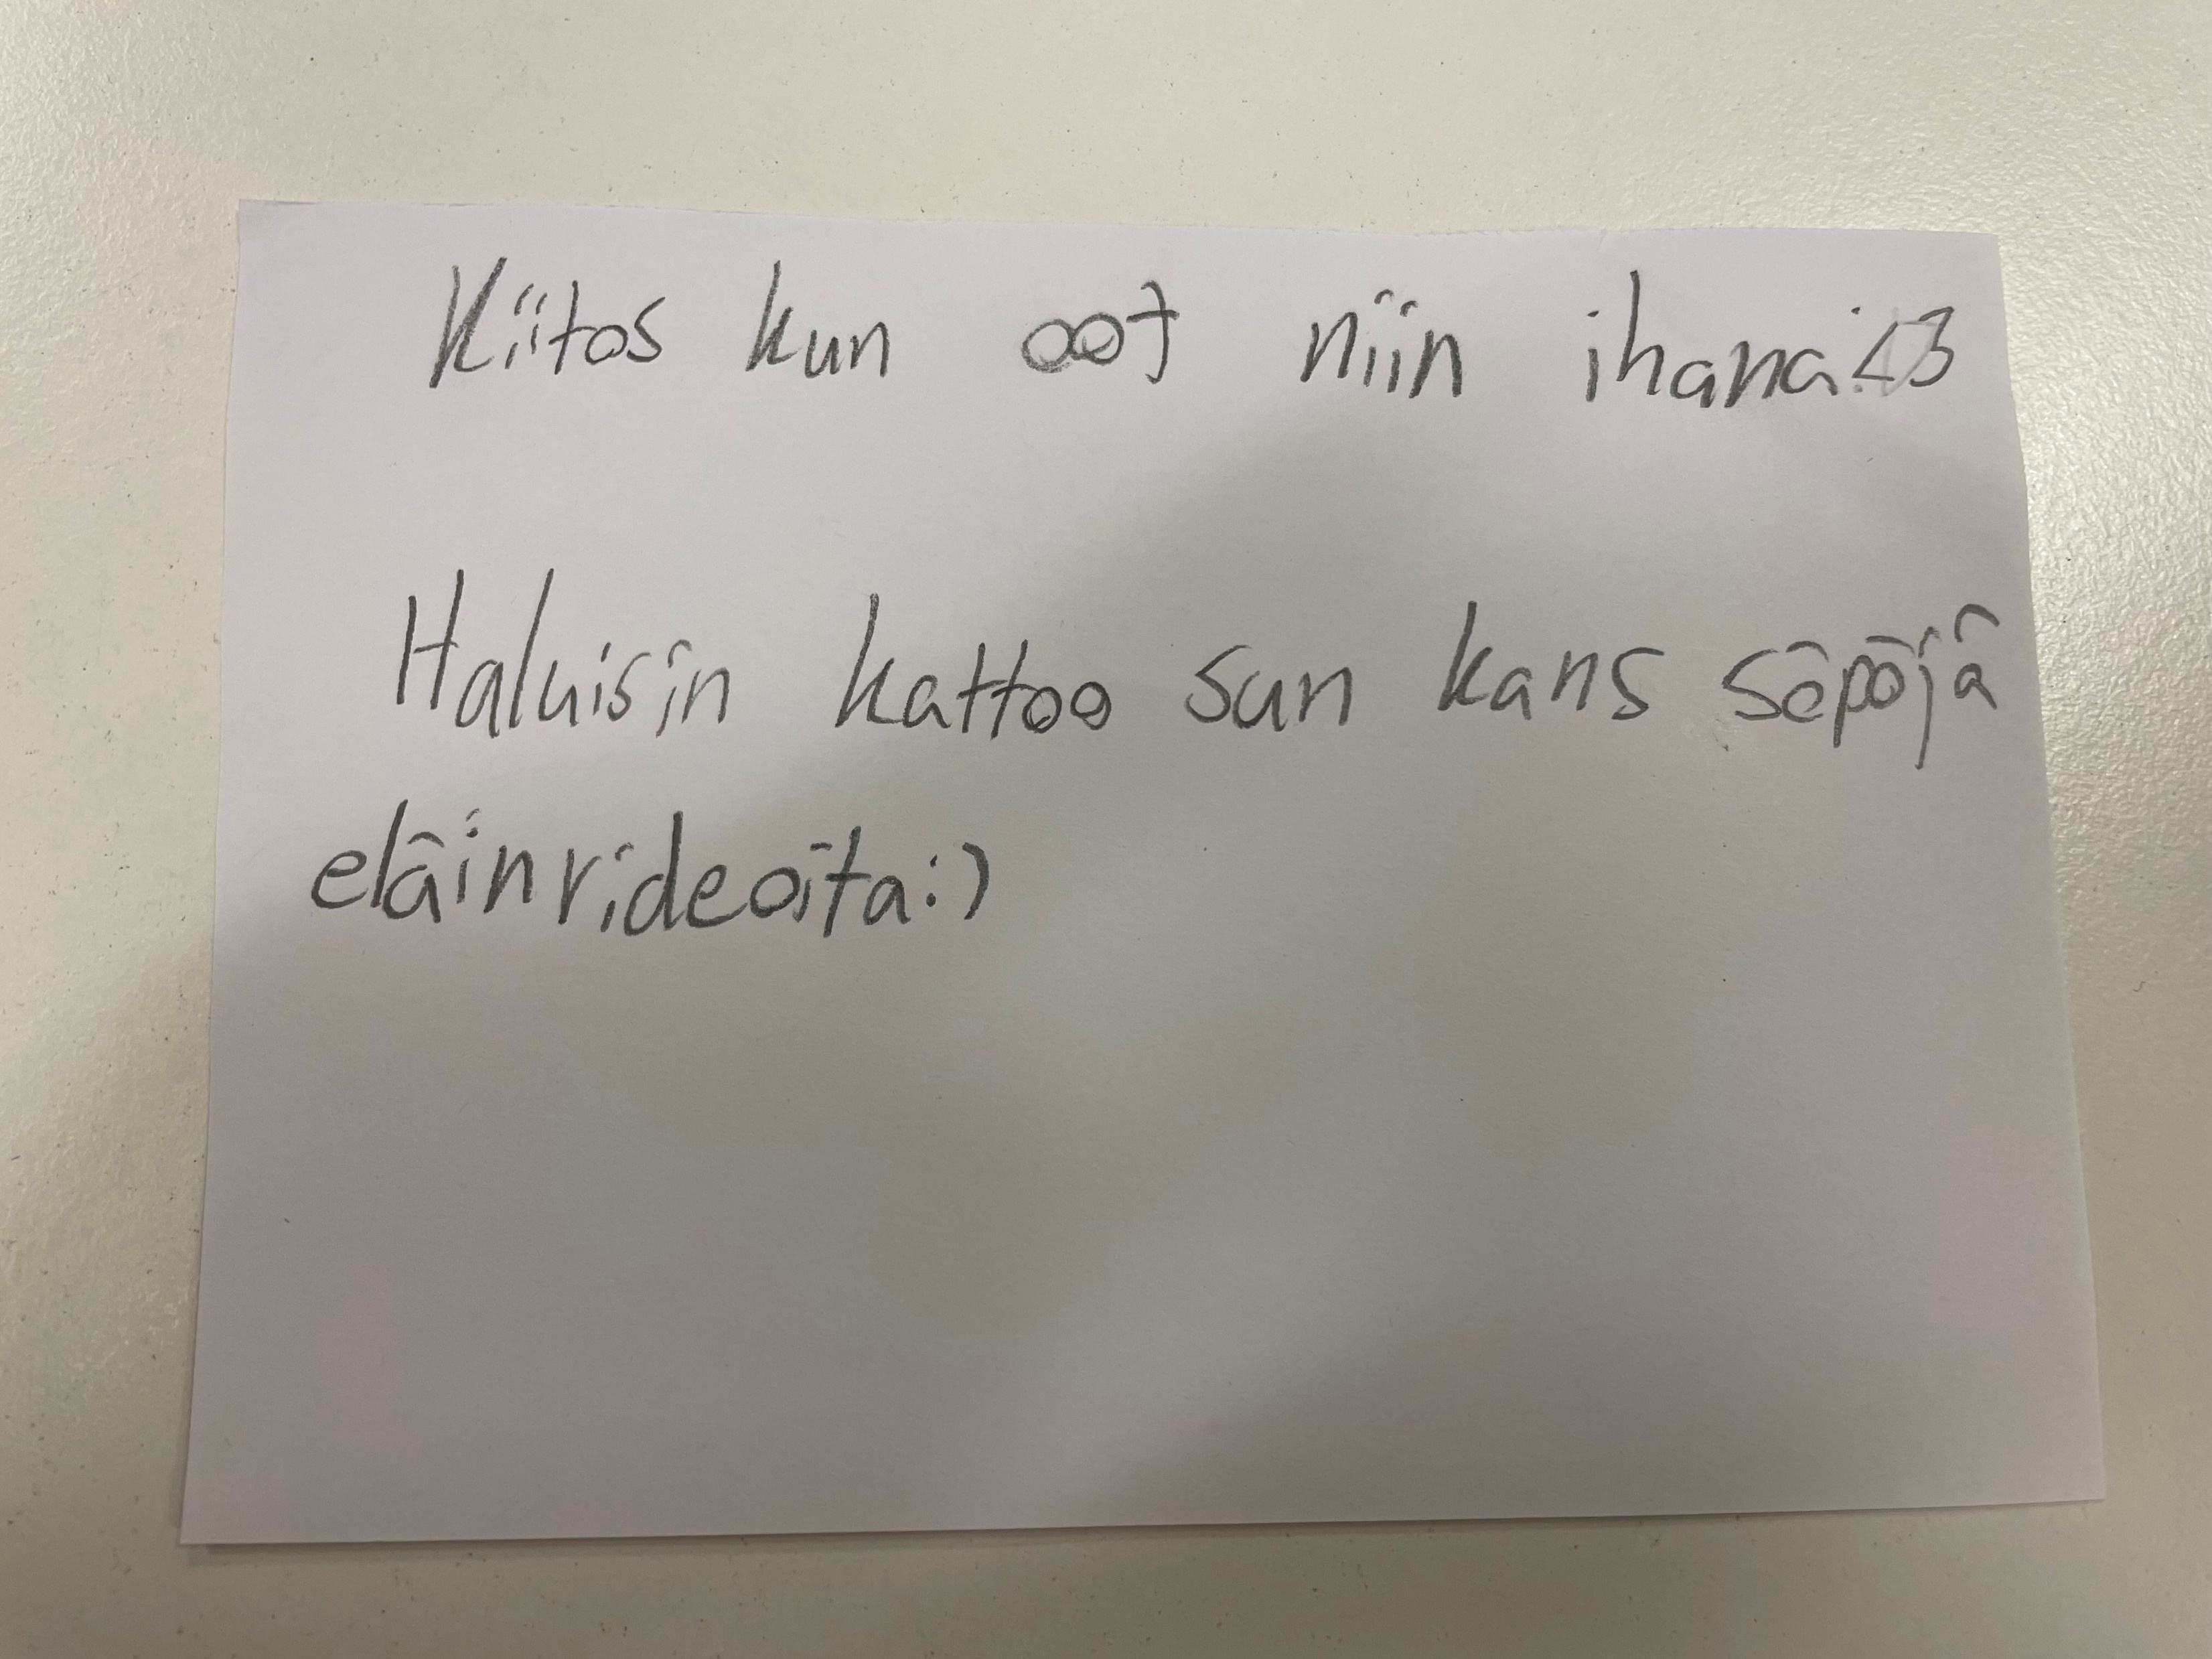 Kiitos kun oot niin ihana:<3
Haluisin kattoo sun kans söpöjä
eläinvideoita:)